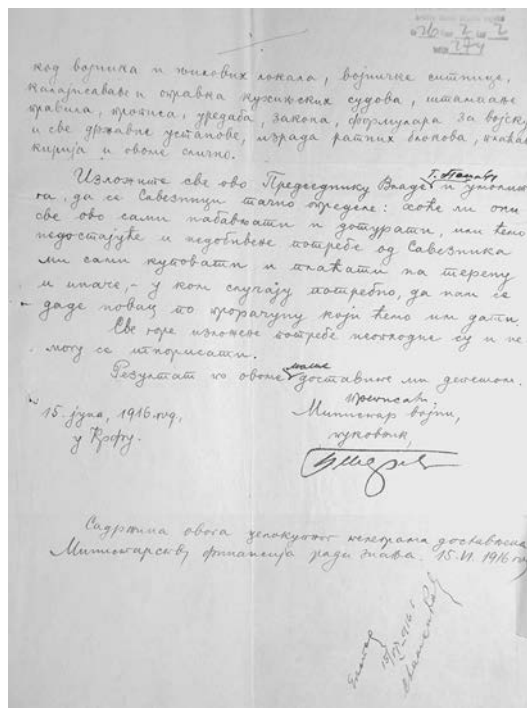 36 2 2
274
код војника и њихових локала, војничке ситнице,
калајисавање и оправка кухињских судова, штампање
правила, прописа, уредаба, закона, формулара за војску
и све државне установе, израда ратних блокова, плаћање
кирија и овоме слично.
Изложите све ово Председнику Владе Г. Пашићу и умолите
га, да се Савезници тачно определе: хоће ли они
све ово сами набављати и дотурати, или ћемо
недостајуће и недобивене потребе од Савезника
ми сами куповати и плаћати на терену
и иначе, – у ком случају потребно, да нам се
даде новац по прорачуну који ћемо им дати.
Све горе изложене потребе неопходне су и не
могу се игнорисати.
Резултат по овоме доставите ми депешом.
15. јуна, 1916. год.
у Крфу.
Министар војни,
пуковник,
Садржина овога целокупног телеграма достављена
Министарству финансија ради знања. 15.VI. 1916 год